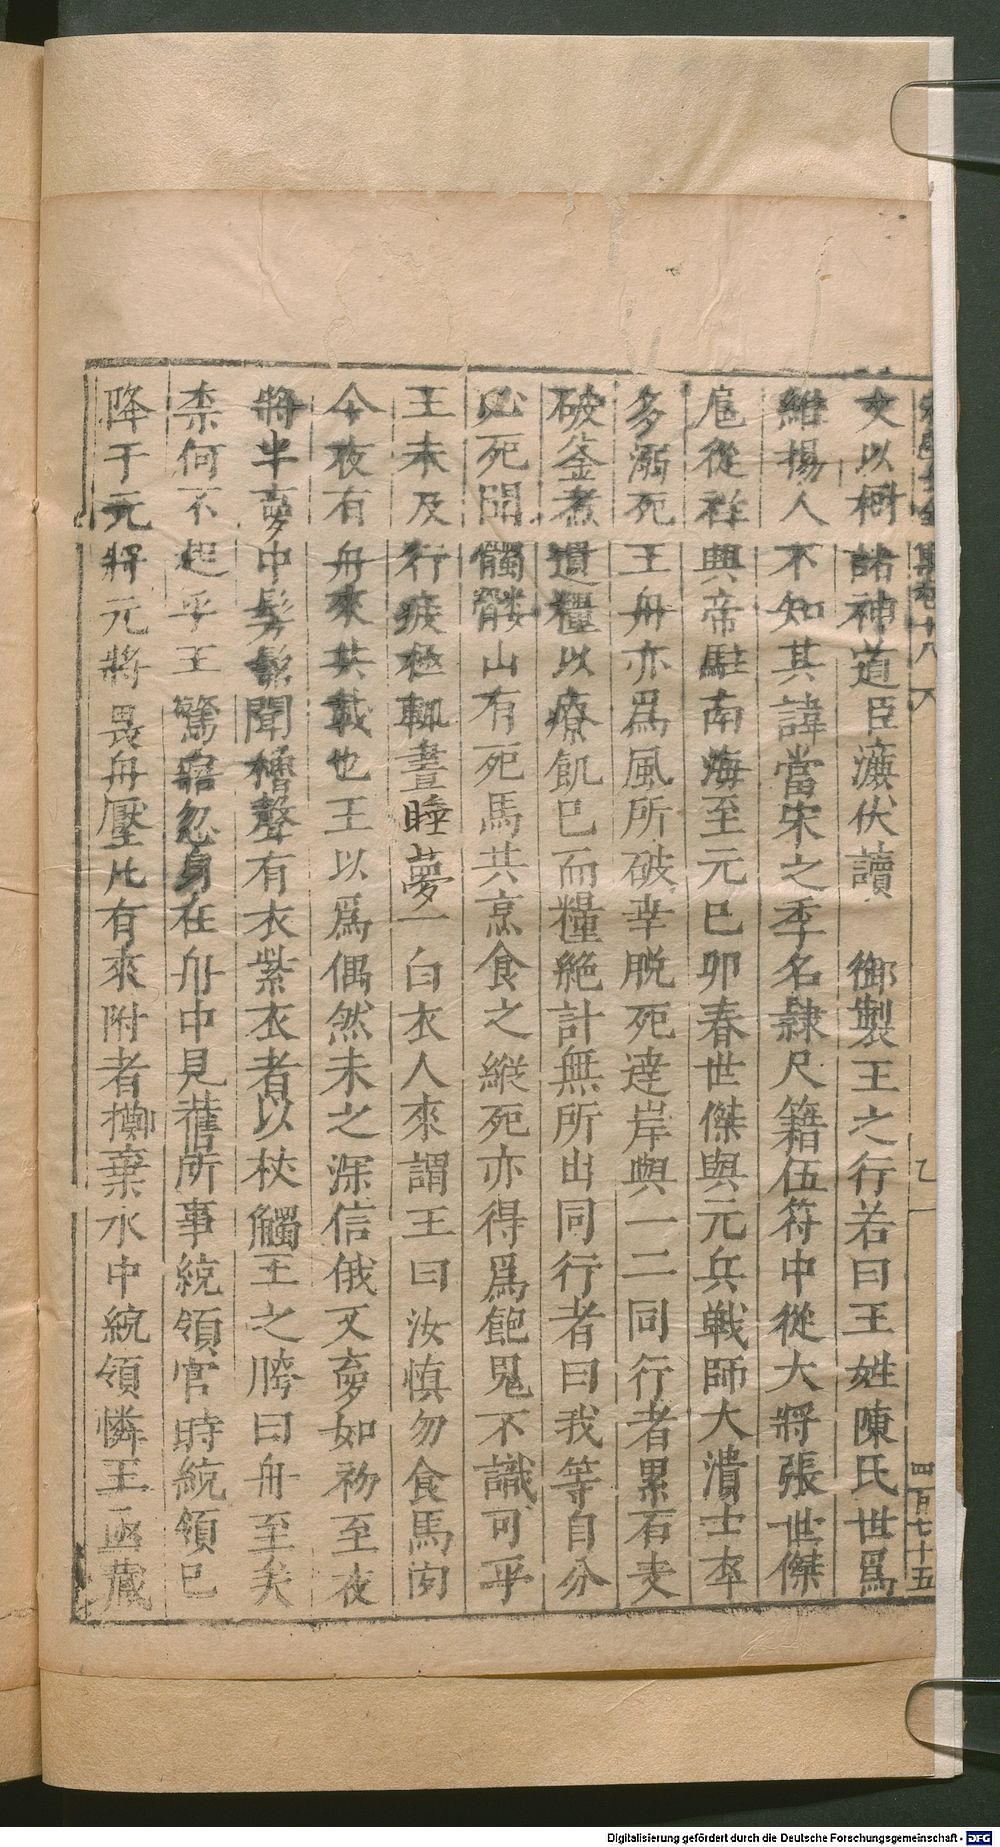 集卷十八 乙 四百七十五
文以樹諸神道臣濂伏讀 御製王之行若曰王姓陳氏世爲
維揚人不知其諱當宋之季名隷尺籍伍符中從大將張世傑
扈從祥興帝駐南海至元己卯春世傑與元兵戰師大潰士卒
多溺死王舟亦爲風所破幸脫死達岸與一二同行者累石支
破釜煮遺糧以療飢已而糧絶計無所出同行者曰我等自分
必死聞髑髏山有死馬共烹食之縱死亦得爲飽鬼不識可乎
王未及行疲極輒晝睡夢一白衣人來謂王曰汝慎勿食馬肉
今夜有舟來共載也王以爲偶然未之深信俄又夣如初至夜
將半夣中髣髴聞櫓聲有衣紫衣者以杖觸王之胯曰舟至矣
柰何不起乎王驚寤忽身在舟中見舊所事統領官時統領已
降于元將元將畏舟壓凡有來附者擲棄水中統領憐王亟藏
Digitalisierung gefördert durch die Deutsche Forschungsgemeinschaft - DFG